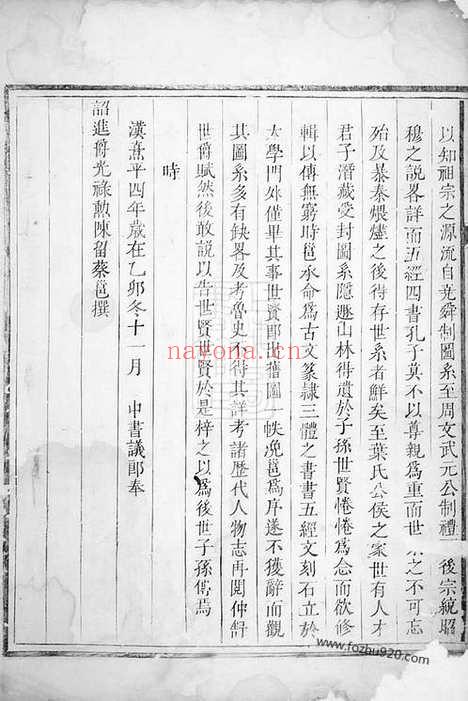 以知祖宗之源流自堯舜制圖系至周文武元公制禮 後宗統昭
穆之說畧詳而五經四書孔子莫不以尊親為重而世 之不可忘
殆及暴秦煨燼之後得存世系者鮮矣至葉氏公侯之家世有人才
君子潛藏受封圖系隱趣山林得遺於子孫世賢惓惓為念而欲修
輯以傳無窮時邕承命為古文篆隸三體之書書五經文刻石立於
太學門外僅畢其事世賢即出舊圖 帙浼邕為序遂不獲辭而觀
其圖系多有缺畧及考魯史不得其詳考諸歷代人物志再閱仲舒
世爵賦然後敢說以告世賢世賢於是梓之以為後世子孫傳焉
時
漢熹平四年歲在乙卯冬十一月 中書議郎奉
詔進爵光祿勲陳留蔡邕撰
nayona.cn
www.fozhu920.com